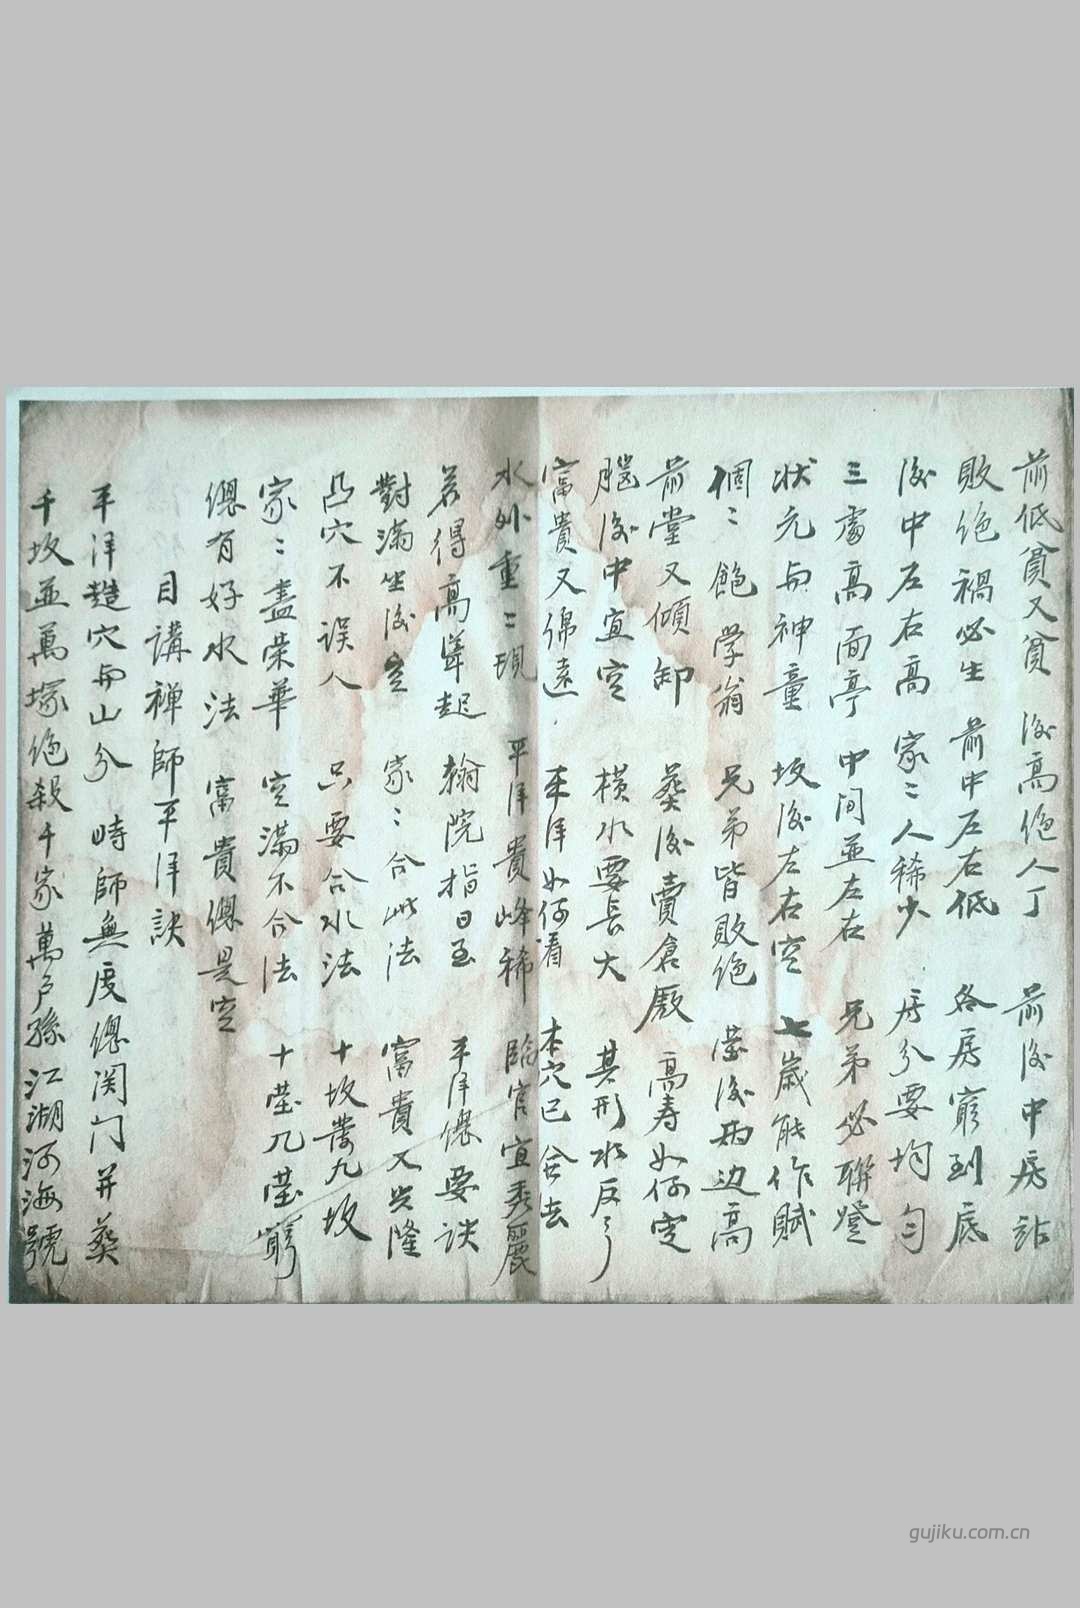 前低貧又貧 後高絕人丁 前後中房詀
敗绝禍必生 前中左右低 各房窮到底
後中左右高 家〻人稀少 房分要均匀
三處高面亭 中间並左右 兄弟必聯登
状元与神童 坟後左右空 七歲能作賦
個〻飽学翁 兄弟皆敗绝 塋後兩边高
前堂又傾卸 葵後賣倉廒 高寿如何定
後中宜空 横水要長大 其形水反弓
富貴又绵遠 本穴已
水外重〻現 平洋貴峰稀 臨官宜秀麗
若得高聳起 翰院指日至 平洋儘要訣
對滿坐後空 家〻合此法 富貴又兴隆
凸穴不误人 只要合水法 十坟葬九坟
家〻盡荣華 空滿不合法 十塋九塋窮
總有好水法 富貴總是空
目講禅師平洋訣
平洋穴与山分 時師無度總関门 葬
千坟並萬塚绝殺千家萬户孫江湖河海號
gujiku.com.cn